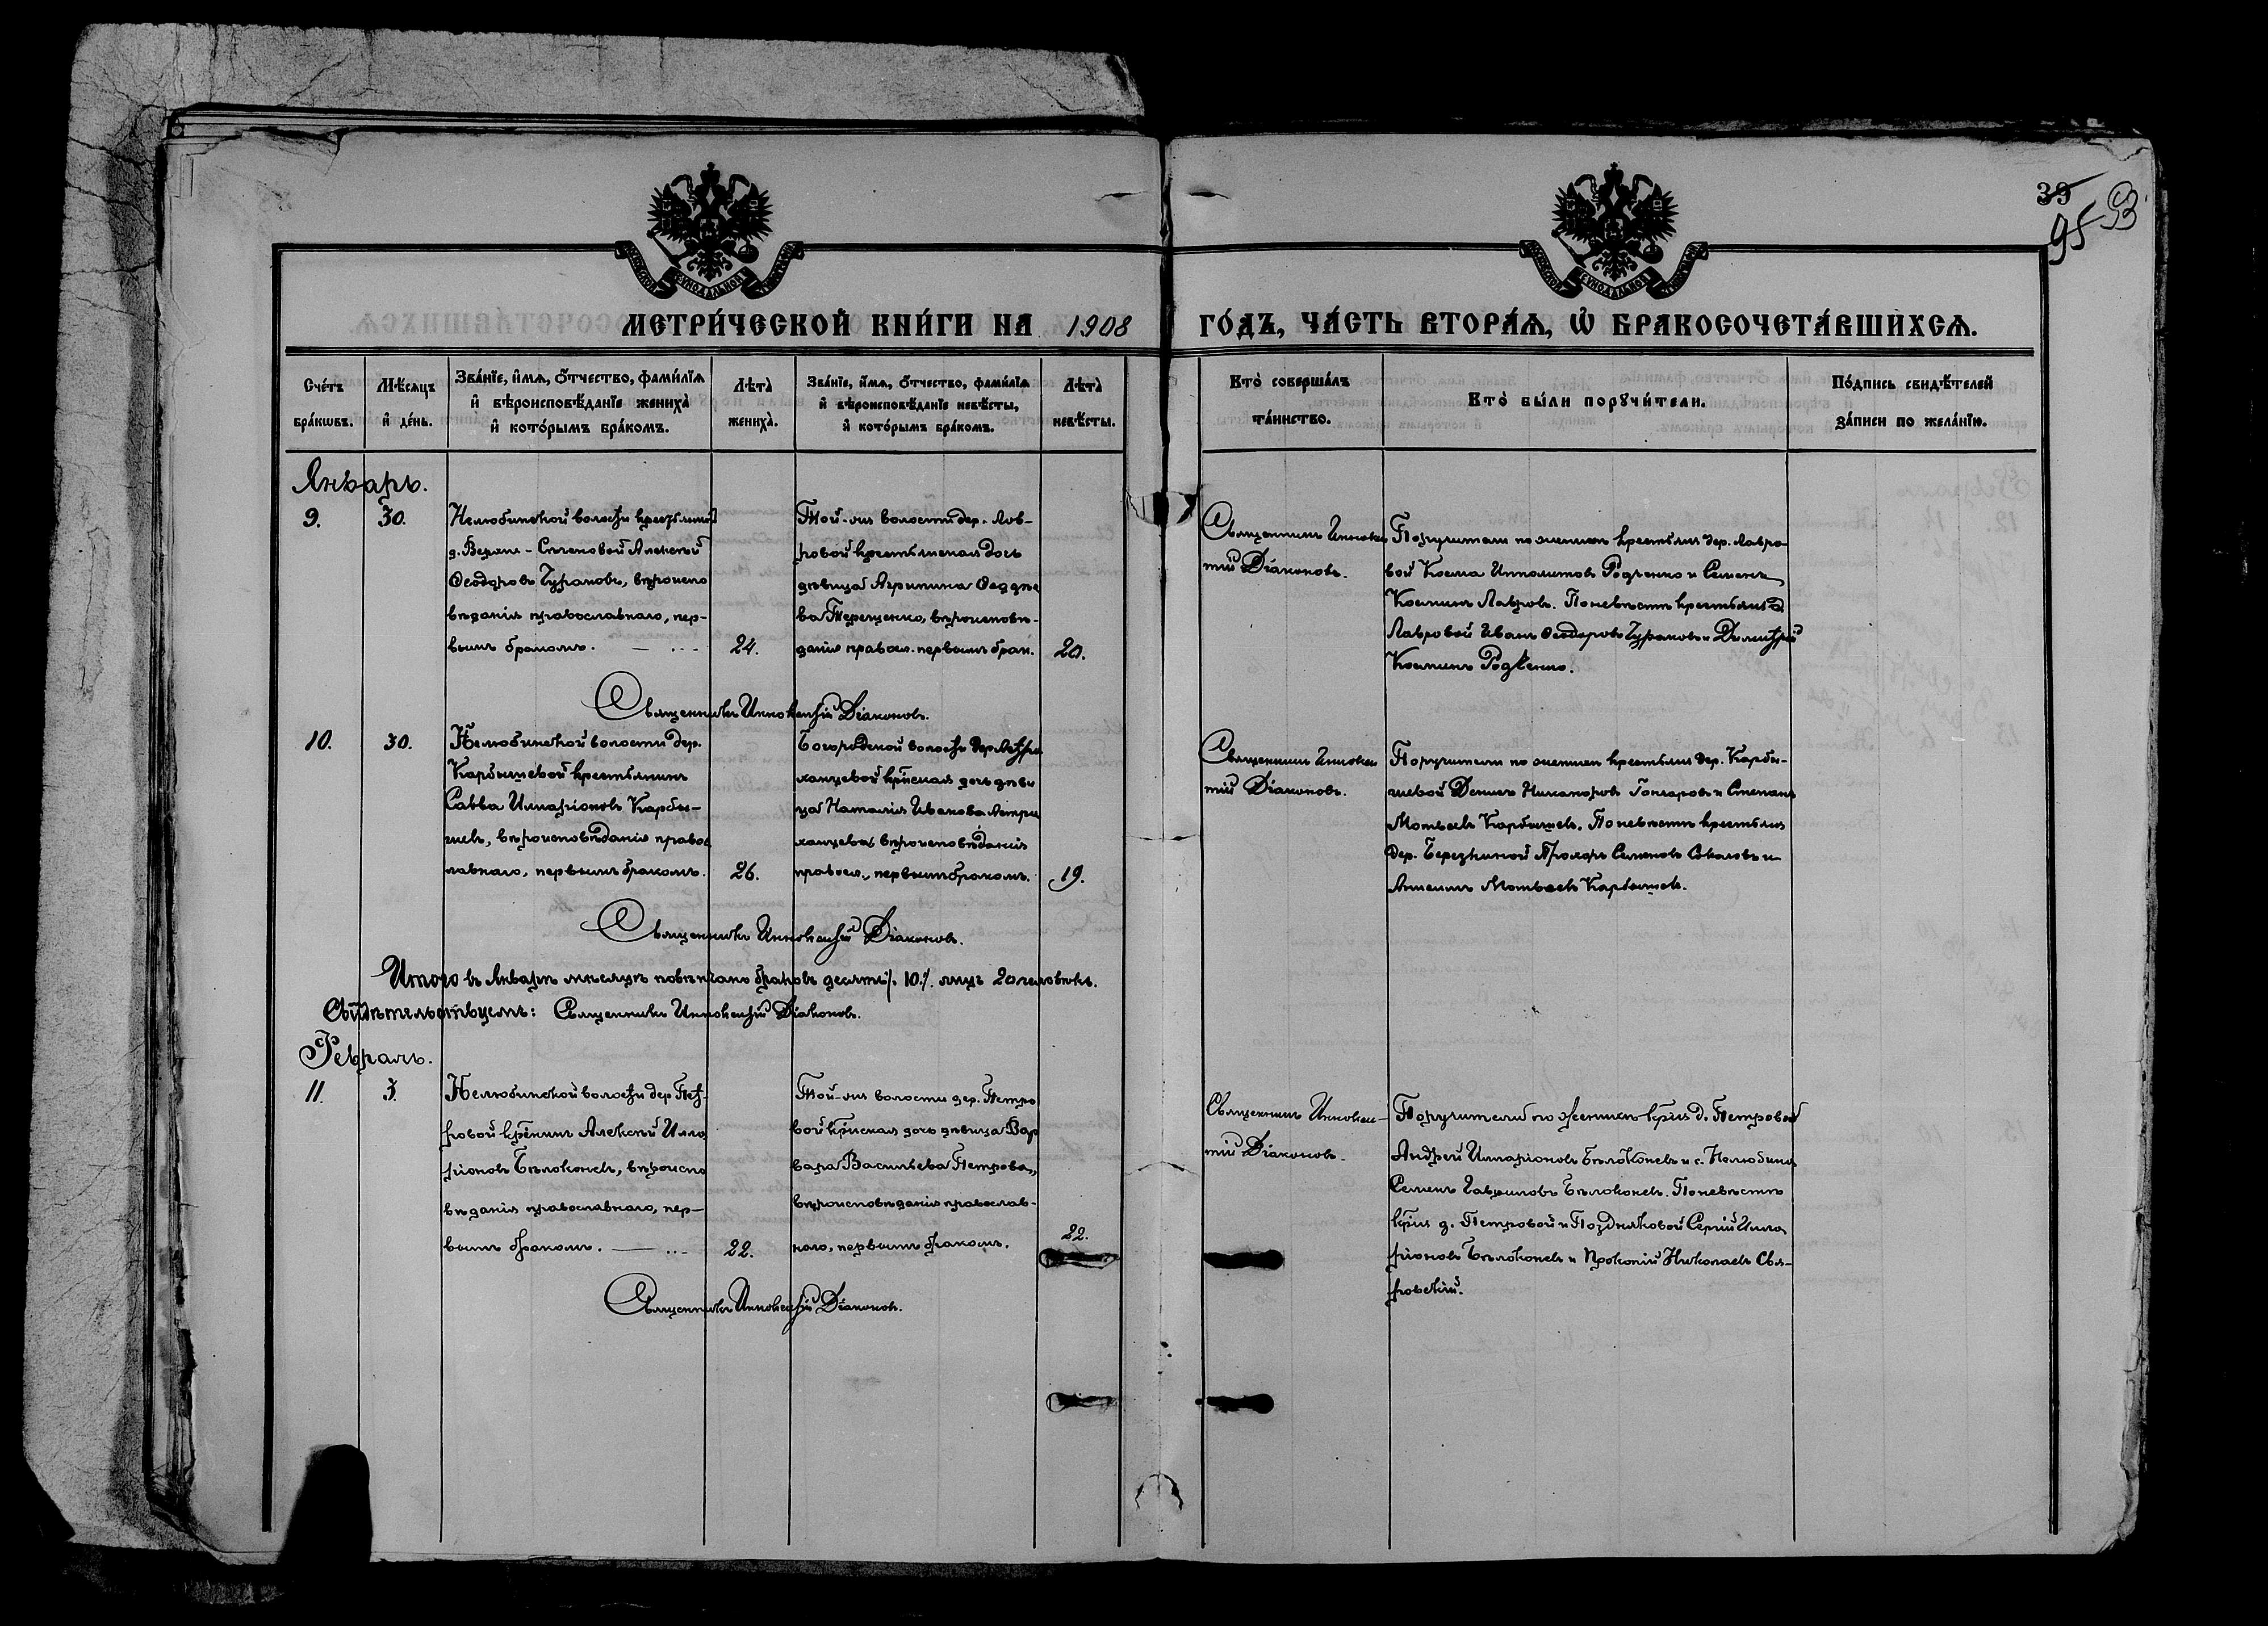 39
95 93
МЕТРИ́ЧЕСКОЙ КНИ́ГИ НА 1908 ГО́ДЪ, ЧА́СТЬ ВТОРА́Я, Ѡ БРАКОСОЧЕТА́ВШИХСЯ.
Сче́тъ бра́кѡвъ.
Мѣ́сяцъ и де́нь.
Зва́нїе, и́мя, ѻ́тчество, фами́лїя и вѣроисповѣ́данїе жениха̀ и кото́рымъ бра́комъ.
Лѣта̀ жениха̀.
Зва́нїе, и́мя, ѻ́тчество, фами́лїя и вѣроисповѣ́данїе невѣ́сты, и кото́рымъ бра́комъ.
Лѣта̀ невѣ́сты.
Кто̀ соверша́лъ та́инство.
Кто̀ бы́ли порꙋчи́тели.
По́дпись свидѣ́телей за́писи по жела́нїю.
Январь.
9.
30.
Нелюбинской волости крестьянинъ
д. Верхне-Сѣченовой Алексѣй
Ѳеодоровъ Чураковъ, вѣроиспо
вѣданія православнаго, пер-
вымъ бракомъ.
24.
Той-же волости дер. Лав-
ровой крестьянская дочь
дѣвица Агрипина Ѳеодоро
ва Терещенко, вѣроисповѣ-
данія правосл. первымъ брак.
20.
Священникъ Иннокен
тій Діаконовъ.
Поручители по женихѣ крестьяне дер. Лавро-
вой Косма Ипполитовъ Родченко и Семенъ
Косминъ Лавровъ. По невѣстѣ крестьяне д.
Лавровой Иванъ Ѳеодоровъ Чураковъ и Димитрій
Косминъ Родченко.
Священникъ Иннокентій Діаконовъ.
10.
30.
Нелюбинской волости дер.
Карбышевой крестьянинъ
Савва Илларіоновъ Карбы-
шевъ, вѣроисповѣданія правос
лавнаго, первымъ бракомъ.
26.
Богородской волости дер. Астра
ханцевой кр̃нская дочь дѣви
ца Наталія Иванова Астра
ханцева, вѣроисповѣданія
правосл., первымъ бракомъ.
19.
Священникъ Иннокен
тій Діаконовъ.
Поручители по женихѣ крестьяне дер. Карбы-
шевой Денисъ Никаноровъ Гончаровъ и Степанъ
Матвѣевъ Карбышевъ. По невѣстѣ крестьяне
дер. Березкиной Прохоръ Семеновъ Соколовъ и
Матвѣевъ Карбышевъ.
Священникъ Иннокентій Діаконовъ.
Итого въ Январѣ мѣсяцѣ повѣнчано браковъ десять /. 10 /. лицъ 20 человѣкъ.
Свидѣтельствуемъ: Священникъ Иннокентій Діаконовъ.
Февраль.
11.
3.
Нелюбинской волости дер. Пет-
ровой кр̃нинъ Алексѣй Илла
ріоновъ Бѣлоконевъ, вѣроиспо
вѣданія православнаго, пер-
вымъ бракомъ.
22.
Той-же волости дер. Петро
вой кр̃нская дочь дѣвица Вар
вара Васильева Петрова,
вѣроисповѣданія православ-
наго, первымъ бракомъ.
22.
Священникъ Иннокен-
тій Діаконовъ.
Поручители по женихѣ кр̃не д. Петровой
Андрей Илларіоновъ Бѣлоконевъ и с. Нелюбина
Семенъ Гавриловъ Бѣлоконевъ. По невѣстѣ
кр̃не д. Петровой и Поздняковой Сергій Илла
ріоновъ Бѣлоконевъ и Прокопій Николаевъ Свя-
ровскій.
Священникъ Иннокентій Діаконовъ.